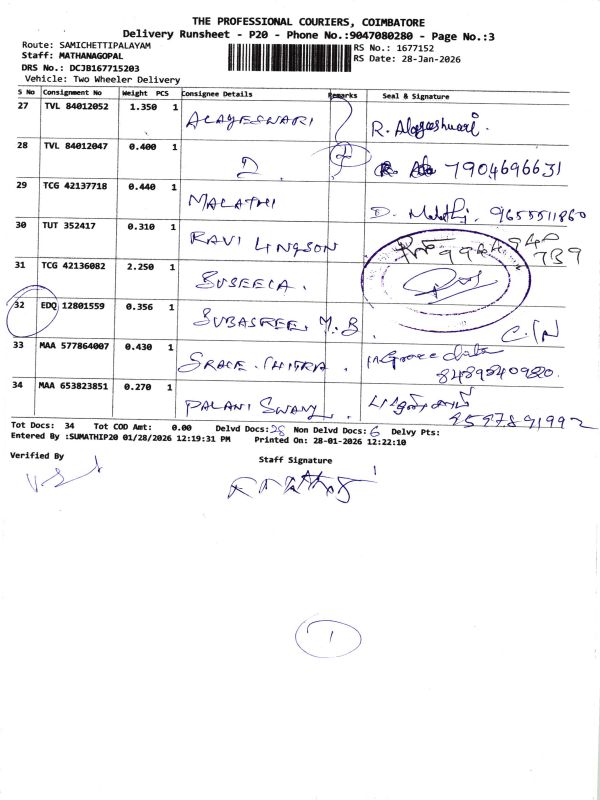 THE PROFESSIONAL COURIERS, COIMBATORE
Delivery Runsheet - P20 - Phone No.:9047080280 - Page No.:3
Route: SAMICHETTIPALAYAM
RS No.: 1677152
Staff: MATHANAGOPAL
RS Date: 28-Jan-2026
DRS No.: DCJB167715203
Vehicle: Two Wheeler Delivery
S No Consignment No Weight PCS Consignee Details Remarks Seal & Signature
27 TVL 84012052 1.350 1 ALAGESWARI R. Alageshwari.
28 TVL 84012047 0.400 1 7904696631
29 TCG 42137718 0.440 1 MALATHI D. Malathi. 9655511860
30 TUT 352417 0.310 1 RAVI LINGSON
31 TCG 42136082 2.250 1 SUSEELA.
32 EDQ 12801559 0.356 1 SUBASREE. M. B. C.
33 MAA 577864007 0.430 1 GRACE. CHITRA. 8489540980.
34 MAA 653823851 0.270 1 PALANI SWAMY. 9597891992
Tot Docs: 34 Tot COD Amt: 0.00 Delvd Docs:28 Non Delvd Docs:6 Delvy Pts:
Entered By :SUMATHIP20 01/28/2026 12:19:31 PM Printed On: 28-01-2026 12:22:10
Verified By Staff Signature
1